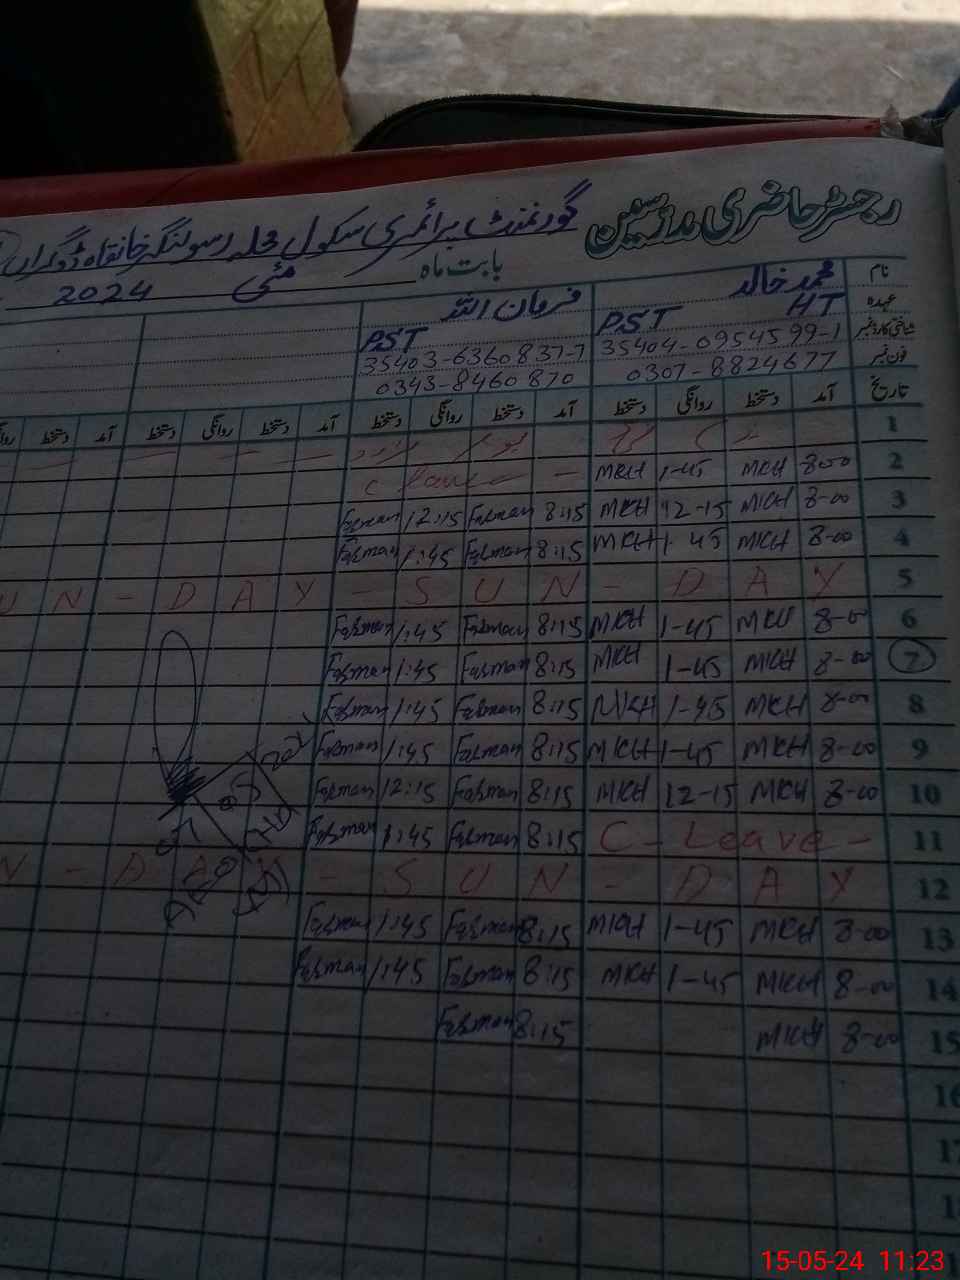 رجسٹر حاضری مدرسین
گورنمنٹ پرائمری سکول محلہ رسولنگر خانقاہ ڈوگراں
بابت ماہ مئی 2024
نام محمد خالد فرمان اللہ
عہدہ HT PST PST
شناختی کارڈ نمبر 35404-0954599-1 35403-6360837-7
فون نمبر 0307-8824677 0343-8460870
تاریخ آمد دستخط روانگی دستخط آمد دستخط روانگی دستخط آمد دستخط روانگی دستخط آمد دستخط
1
2 8-00 MKH 1-45 MKH C Leave
3 8-00 MKH 12-15 MKH 8:15 Farman 12:15 Farman
4 8-00 MKH 1-45 MKH 8:15 Farman 1:45 Farman
5 SUN-DAY - SUN-DAY
6 8-00 MKH 1-45 MKH 8:15 Farman 1:45 Farman
7 8-00 MKH 1-45 MKH 8:15 Farman 1:45 Farman
8 8-00 MKH 1-45 MKH 8:15 Farman 1:45 Farman
9 8-00 MKH 1-45 MKH 8:15 Farman 1:45 Farman
10 8-00 MKH 12-15 MKH 8:15 Farman 12:15 Farman
11 C-Leave- 8:15 Farman 1:45 Farman
12 SUN-DAY - N-DAY
13 8-00 MKH 1-45 MKH 8:15 Farman 1:45 Farman
14 8-00 MKH 1-45 MKH 8:15 Farman 1:45 Farman
15 8-00 MKH 8:15 Farman
16
17
15-05-24 11:23